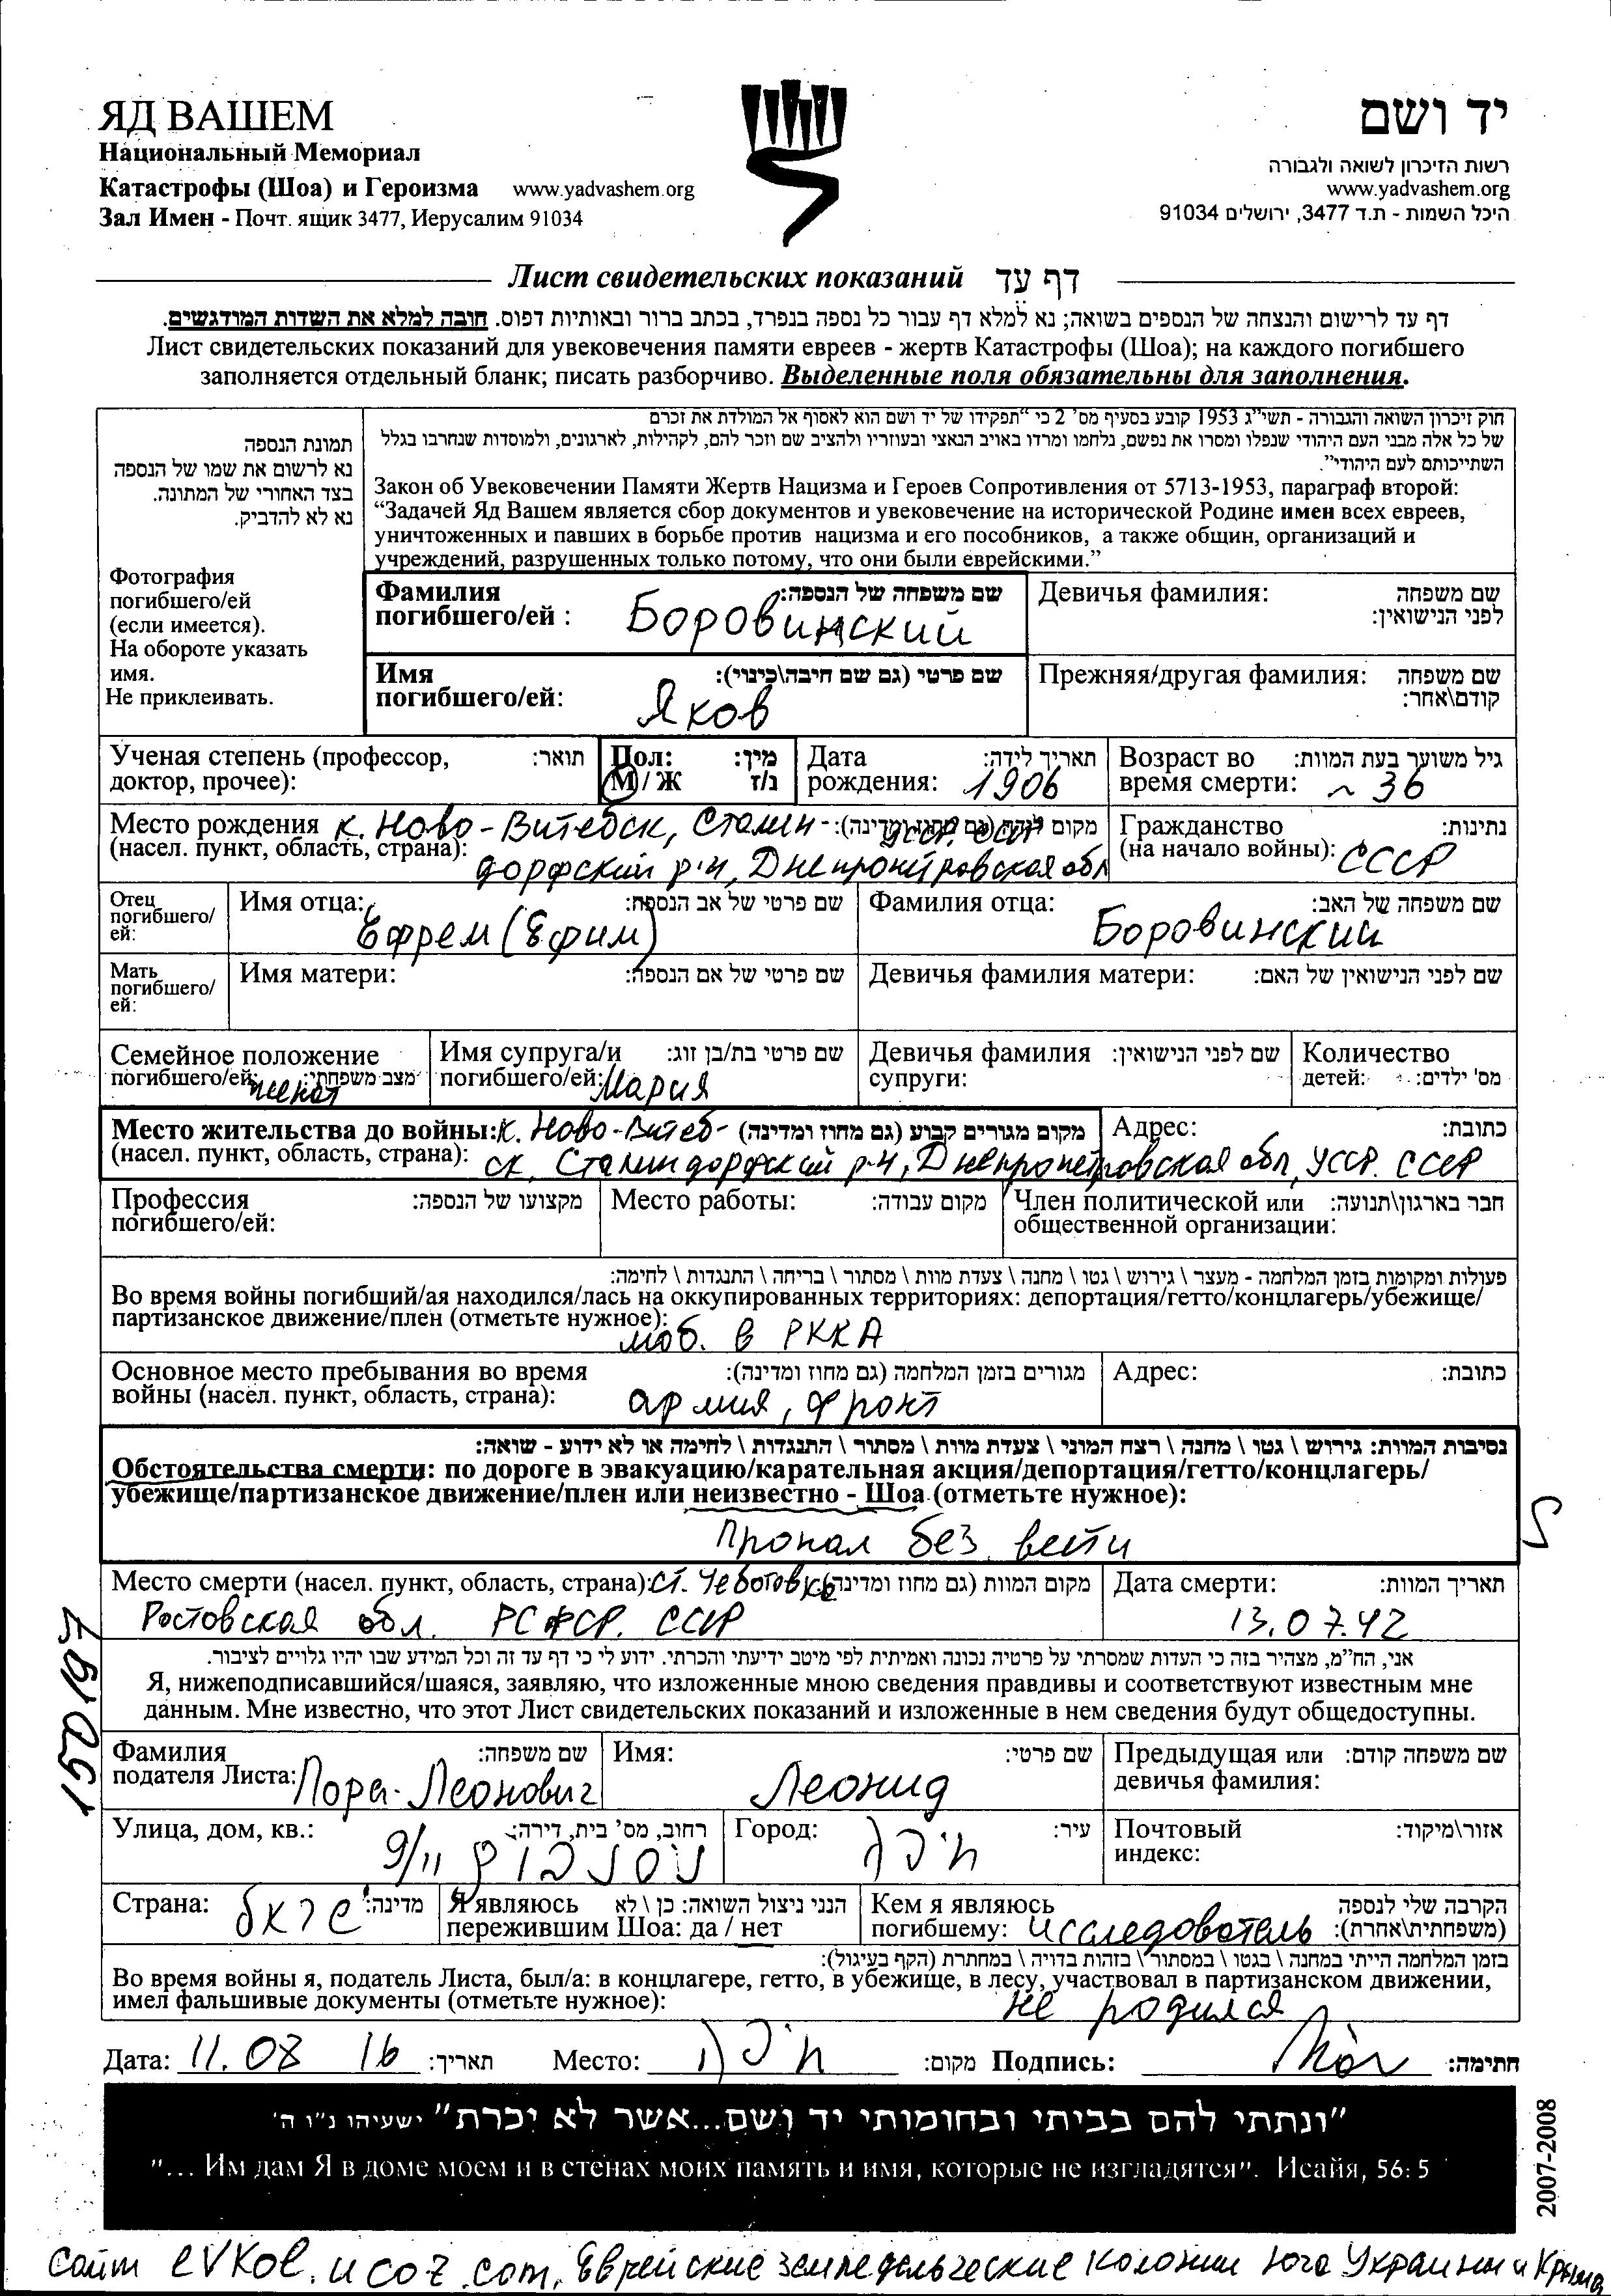 ЯД ВАШЕМ
Национальный Мемориал
Катастрофы (Шоа) и Героизма www.yadvashem.org
Зал Имен - Почт. ящик 3477, Иерусалим 91034
יד ושם
רשות הזיכרון לשואה ולגבורה
www.yadvashem.org
היכל השמות - ת.ד 3477, ירושלים 91034
Лист свидетельских показаний דף עד
דף עד לרישום והנצחה של הנספים בשואה; נא למלא דף עבור כל נספה בנפרד, בכתב ברור ובאותיות דפוס. חובה למלא את השדות המודגשים.
Лист свидетельских показаний для увековечения памяти евреев - жертв Катастрофы (Шоа); на каждого погибшего
заполняется отдельный бланк; писать разборчиво. Выделенные поля обязательны для заполнения.
תמונת הנספה
נא לרשום את שמו של הנספה
בצד האחורי של המתונה.
נא לא להדביק.
Фотография
погибшего/ей
(если имеется).
На обороте указать
имя.
Не приклеивать.
חוק זיכרון השואה והגבורה - תשי"ג 1953 קובע בסעיף מס' 2 כי "תפקידו של יד ושם הוא לאסוף אל המולדת את זכרם
של כל אלה מבני העם היהודי שנפלו ומסרו את נפשם, נלחמו ומרדו באויב הנאצי ובעוזריו ולהציב שם וזכר להם, לקהילות, לארגונים, ולמוסדות שנחרבו בגלל
השתייכותם לעם היהודי".
Закон об Увековечении Памяти Жертв Нацизма и Героев Сопротивления от 5713-1953, параграф второй:
“Задачей Яд Вашем является сбор документов и увековечение на исторической Родине имен всех евреев,
уничтоженных и павших в борьбе против нацизма и его пособников, а также общин, организаций и
учреждений, разрушенных только потому, что они были еврейскими.”
Фамилия погибшего/ей : שם משפחה של הנספה: Боровинский
Девичья фамилия: שם משפחה לפני הנישואין:
Имя погибшего/ей: שם פרטי (גם שם חיבה\כינוי): Яков
Прежняя/другая фамилия: שם משפחה קודם\אחר:
Ученая степень (профессор, доктор, прочее): תואר:
Пол: מין: М / Ж נ/ז
Дата рождения: תאריך לידה: 1906
Возраст во время смерти: גיל משוער בעת המוות: ~ 36
Место рождения (насел. пункт, область, страна): מקום לידה (גם מחוז ומדינה): к. Ново-Витебск, Сталин-
дорфский р-н, Днепропетровская обл УССР. СССР
Гражданство (на начало войны): נתינות: СССР
Отец погибшего/ей: Имя отца: שם פרטי של אב הנספה: Ефрем (Ефим)
Фамилия отца: שם משפחה של האב: Боровинский
Мать погибшего/ей: Имя матери: שם פרטי של אם הנספה:
Девичья фамилия матери: שם לפני הנישואין של האם:
Семейное положение погибшего/ей: מצב משפחתי: женат
Имя супруга/и погибшего/ей: שם פרטי בת/בן זוג: Мария
Девичья фамилия супруги: שם לפני הנישואין:
Количество детей: מס' ילדים:
Место жительства до войны: (насел. пункт, область, страна): מקום מגורים קבוע (גם מחוז ומדינה) к. Ново-Витеб-
ск, Сталиндорфский р-н, Днепропетровская обл, УССР. СССР
Адрес: כתובת:
Профессия погибшего/ей: מקצועו של הנספה:
Место работы: מקום עבודה:
Член политической или общественной организации: חבר בארגון\תנועה:
פעולות ומקומות בזמן המלחמה - מעצר \ גירוש \ גטו \ מחנה \ צעדת מוות \ מסתור \ בריחה \ התנגדות \ לחימה:
Во время войны погибший/ая находился/лась на оккупированных территориях: депортация/гетто/концлагерь/убежище/
партизанское движение/плен (отметьте нужное): моб. в РККА
Основное место пребывания во время войны (насел. пункт, область, страна): מגורים בזמן המלחמה (גם מחוז ומדינה): армия, фронт
Адрес: כתובת:
נסיבות המוות: גירוש \ גטו \ מחנה \ רצח המוני \ צעדת מוות \ מסתור \ התנגדות \ לחימה או לא ידוע - שואה:
Обстоятельства смерти: по дороге в эвакуацию/карательная акция/депортация/гетто/концлагерь/
убежище/партизанское движение/плен или неизвестно - Шоа (отметьте нужное):
Пропал без вести
Место смерти (насел. пункт, область, страна): מקום המוות (גם מחוז ומדינה) ст. Чеботовка
Ростовская обл. РСФСР. СССР
Дата смерти: תאריך המוות: 13.07.42
אני, הח"מ, מצהיר בזה כי העדות שמסרתי על פרטיה נכונה ואמיתית לפי מיטב ידיעתי והכרתי. ידוע לי כי דף עד זה וכל המידע שבו יהיו גלויים לציבור.
Я, нижеподписавшийся/шаяся, заявляю, что изложенные мною сведения правдивы и соответствуют известным мне
данным. Мне известно, что этот Лист свидетельских показаний и изложенные в нем сведения будут общедоступны.
Фамилия подателя Листа: שם משפחה: Пора-Леонович
Имя: שם פרטי: Леонид
Предыдущая или девичья фамилия: שם משפחה קודם:
Улица, дом, кв.: רחוב, מס' בית, דירה: 9/11
Город: עיר: חיפה
Почтовый индекс: אזור\מיקוד:
Страна: מדינה: ישראל
Я являюсь пережившим Шоа: да / нет הנני ניצול השואה: כן \ לא
Кем я являюсь погибшему: הקרבה שלי לנספה (משפחתית\אחרת): исследователь
בזמן המלחמה הייתי במחנה \ בגטו \ במסתור \ בזהות בדויה \ במחתרת (הקף בעיגול):
Во время войны я, податель Листа, был/а: в концлагере, гетто, в убежище, в лесу, участвовал в партизанском движении,
имел фальшивые документы (отметьте нужное): не родился
Дата: 11.08 16 תאריך: Место: חיפה מקום: Подпись: חתימה:
"ונתתי להם בביתי ובחומותי יד ושם...אשר לא יכרת" ישעיהו נ"ו ה'
"... Им дам Я в доме моем и в стенах моих память и имя, которые не изгладятся". Исайя, 56: 5
2007-2008
сайт evkol.ucoz.com, Еврейские земледельческие колонии юга Украины и Крыма